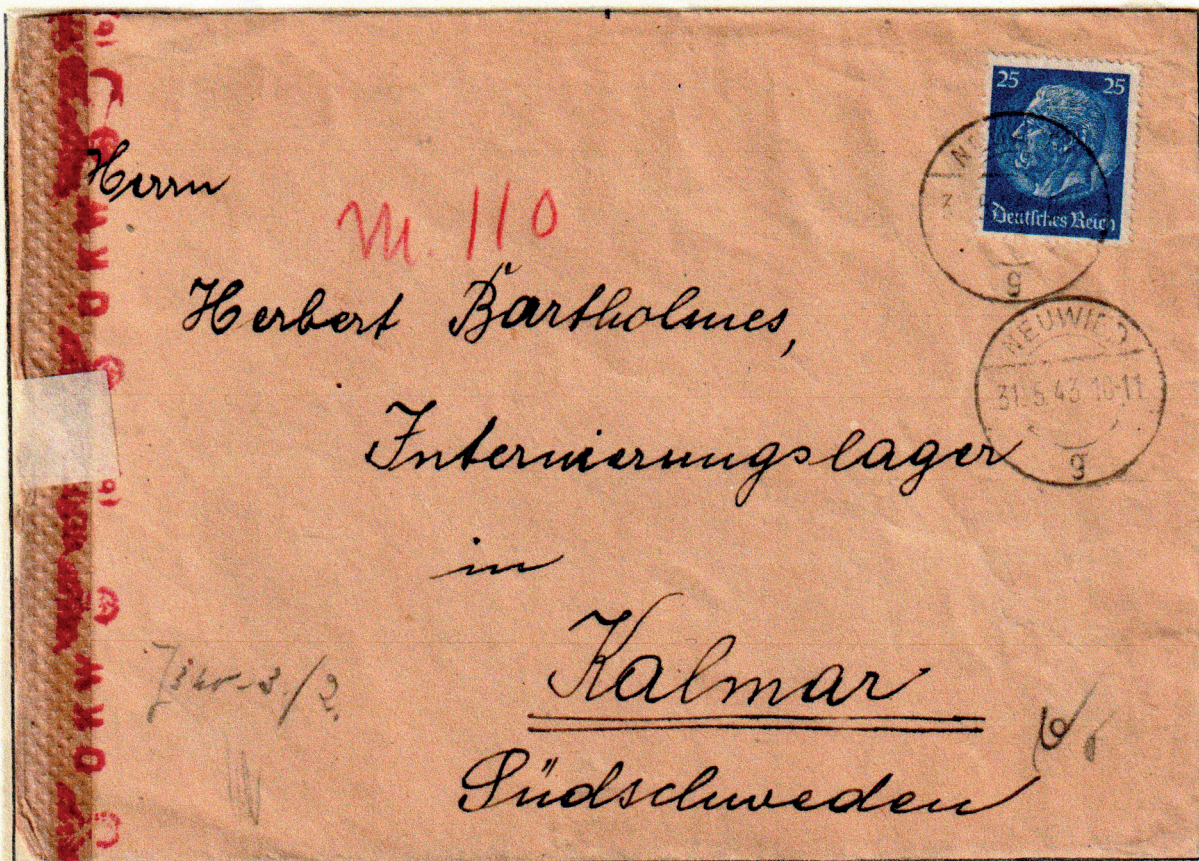 25 25
Deutsches Reich
g
NEUWIED
31.5.43.10-11
g
Herrn
M. 110
Herbert Bartholmes,
Internierungslager
in
Kalmar
Südschweden
OKW
OKW